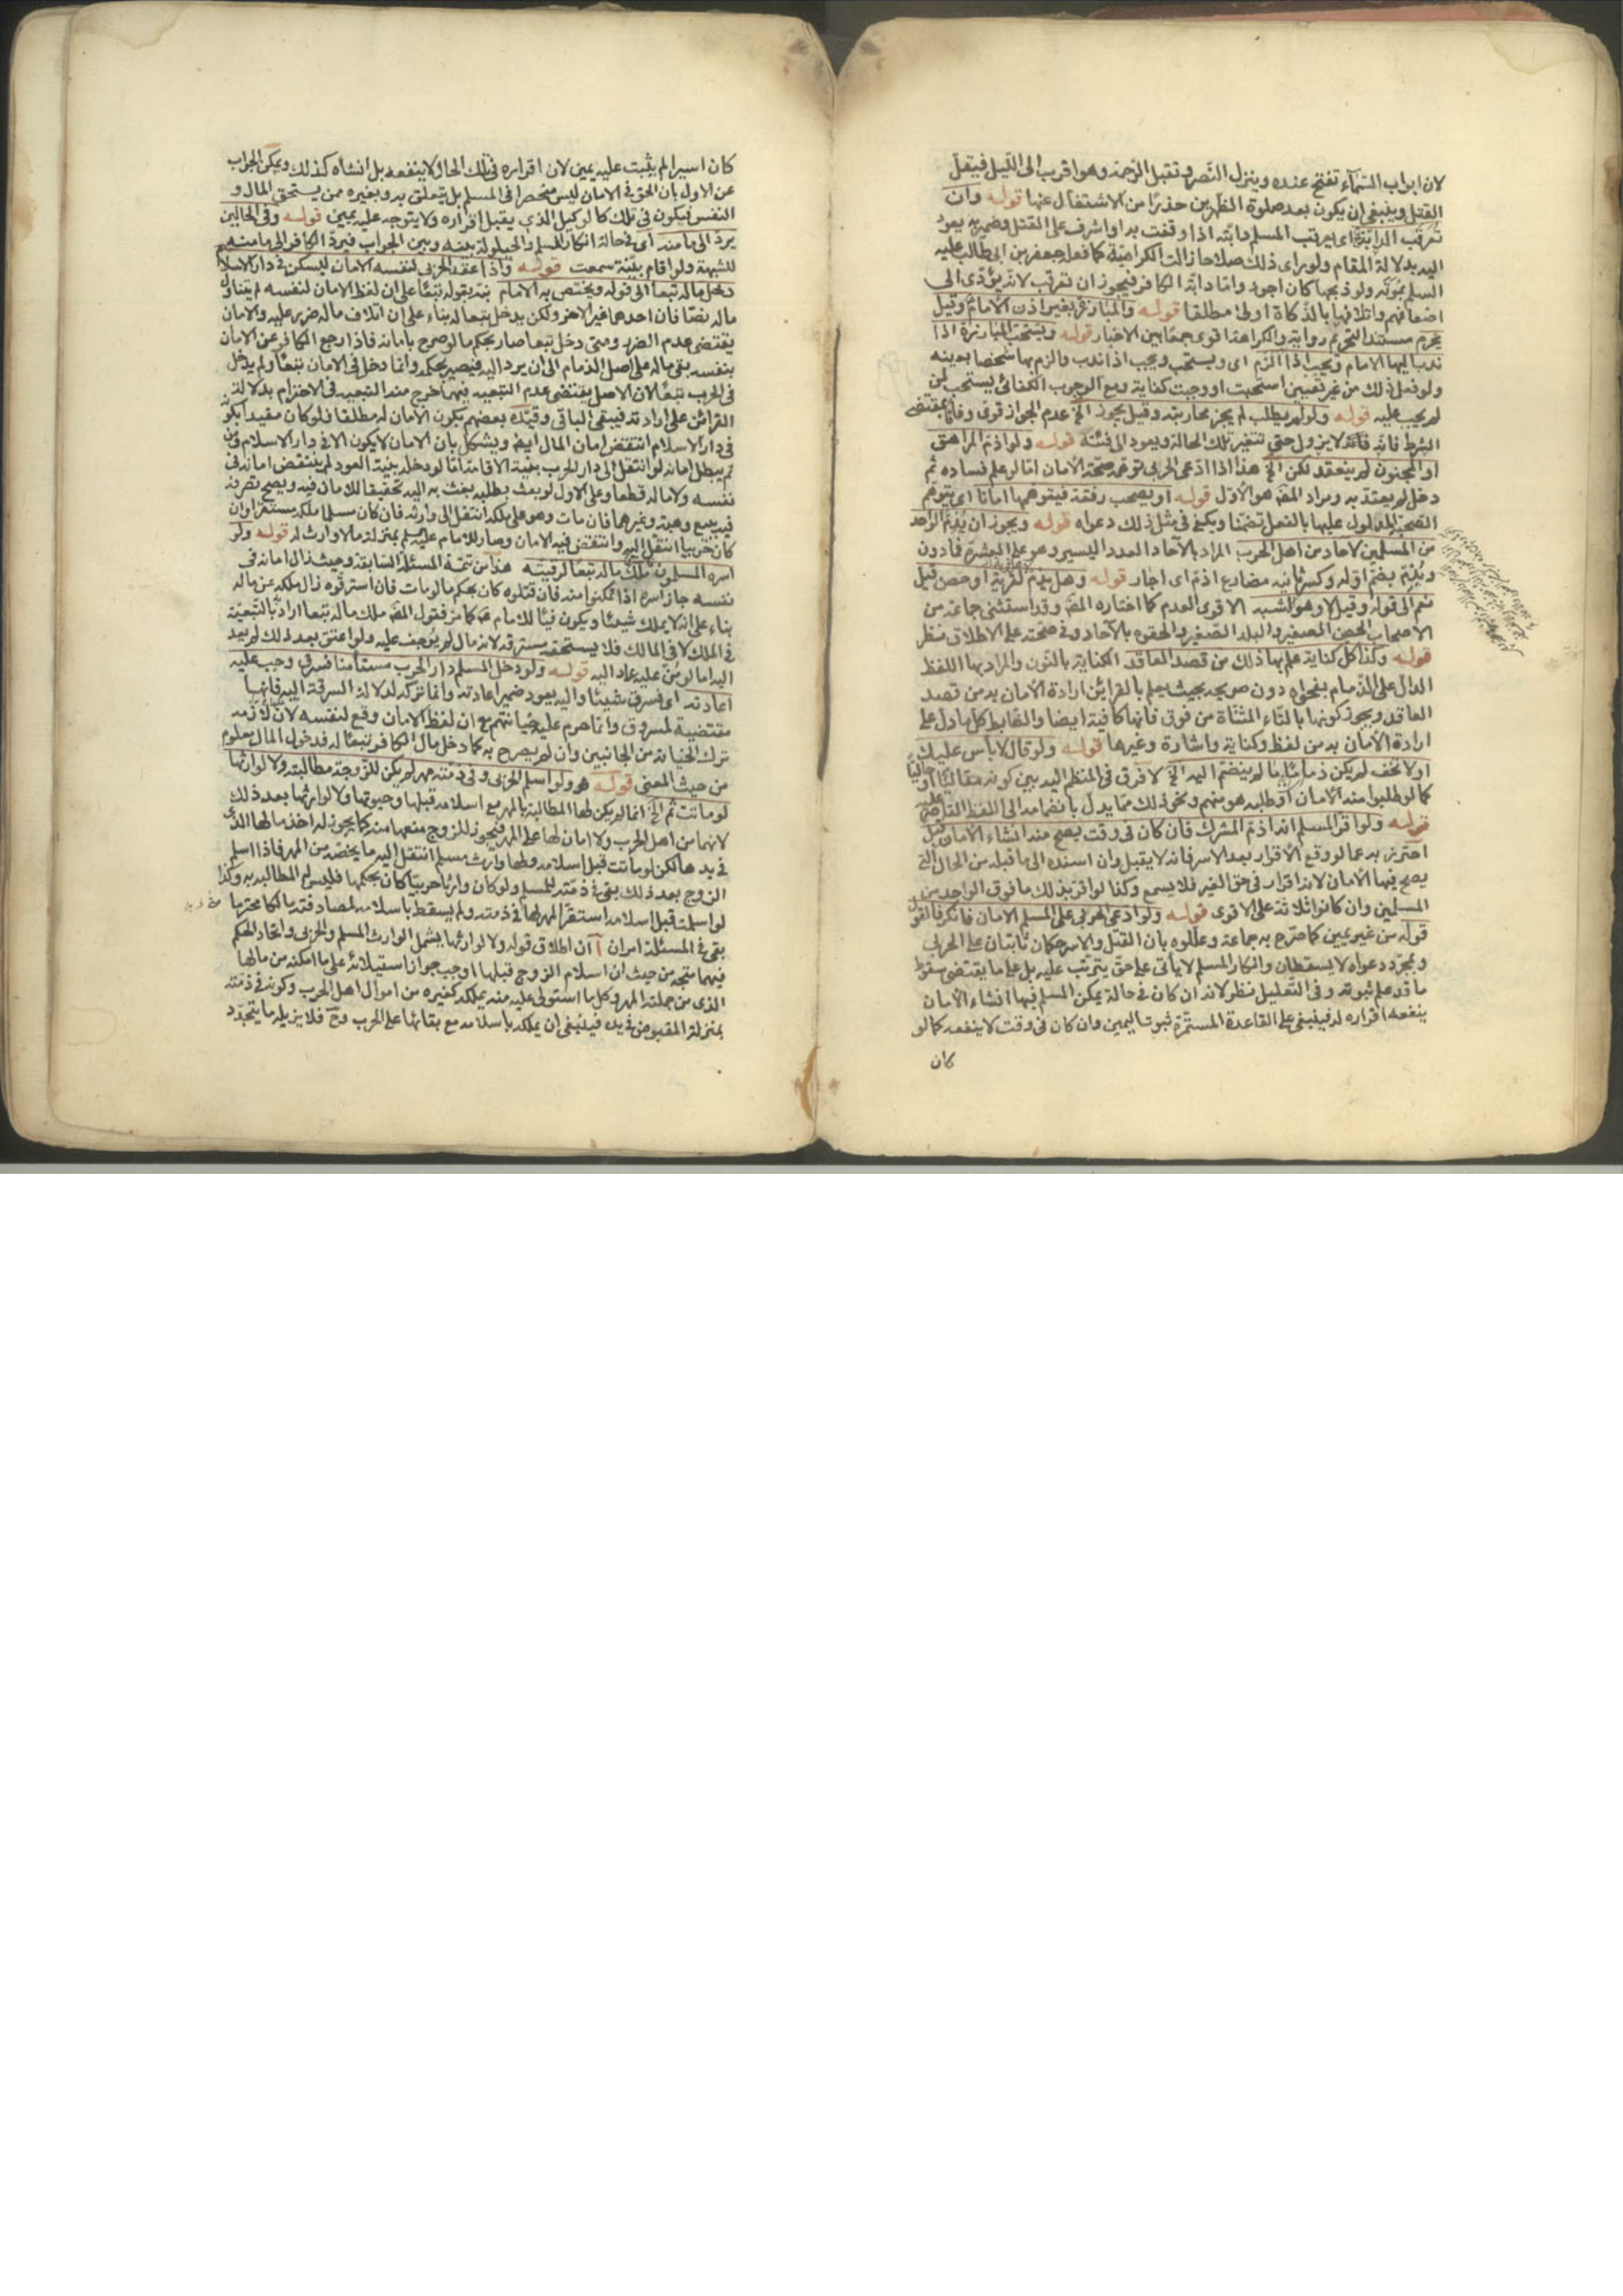 لان ابواب السمآء تفتح عنده وينزل النصر وتقبل الرحمة وهو اقرب الى الليل فيقل
القتل وينبغى ان يكون بعد صلوة الظهرين حذرًا من الاشتغال عنها قوله وان
تعرقب الدابة اى يعرقب المسلم دابته اذا وقفت به او اشرف على القتل وضمير يعود
اليه بدلالة المقام ولو راى ذلك صلاحا زالت الكراهية كما فعل جعفر بن ابى طالب عليه
السلم بموته ولو ذبحها كان اجود واما دابة الكافر فيجوز ان تعرقب لانه يؤدى الى
اضعافهم واتلافها بالذكاة اولى مطلقا قوله والمبارزة بغير اذن الامام وقيل
يحرم مستند التحريم رواية والكراهة اقوى جمعًا بين الاخبار قوله ويستحب المبارزة اذا
ندب اليها الامام ويجب اذا الزم اى ويستحب ويجب اذا ندب والزم بها شخصا بعينه
ولو فعل ذلك من غير تعيين استحبت او وجبت كفاية ومع الوجوب الكفائى يستحب لمن
لم يجب عليه قوله ولو لم يطلب لم يجز محاربته وقيل يجوز الخ عدم الجواز قوى وفاءً بمقتضى
الشرط فانه لا يزول حتى تتغير تلك الحالة ويعود الى فئته قوله ولو اذم المراهق
او المجنون لم ينعقد لكن الخ هذا اذا ادعى الحربى توهمه صحة الامان اما لو علم فساده ثم
دخل لم يعتد به ومراد المصه هو الاول قوله او يصحب رفقة فيتوهمها امانا اى يتوهم
الصحبة المدلول عليها بالفعل تضمنا ويكفى فى مثل ذلك دعواه قوله ويجوز ان يذم الواحد
من المسلمين لآحاد من اهل الحرب المراد بالآحاد العدد اليسير وهو على العشرة فما دون
ويذم بضم اوله وكسر ثانيه مضارع اذم اى اجار قوله وهل يذم لقرية او حصن قيل
نعم الى قوله وقيل لا وهو الاشبه الاقوى العدم كما اختاره المصه وقد استثنى جماعة من
الاصحاب الحصن الصغير والبلد الصغير والحقوه بالآحاد وفى صحته على الاطلاق نظر
قوله وكذا كل كناية علم بها ذلك من قصد العاقد الكناية بالنون والمراد بها اللفظ
الدال على الذمام بفحواه دون صريحه بحيث يعلم بالقرائن ارادة الامان به من قصد
العاقد ويجوز كونها بالتاء المثناة من فوق فانها كافية ايضا والضابط كل ما دل على
ارادة الامان به من لفظ وكتابة واشارة وغيرها قوله ولو قال لا باس عليك
او لا تخف لم يكن ذماما ما لم ينضم اليه الخ لا فرق فى المنظم اليه بين كونه مقاليًا او حاليًا
كما لو طلبوا منه الامان او طلبه هو منهم ونحو ذلك مما يدل بانضمامه الى اللفظ
قوله ولو اقر المسلم انه اذم المشرك فان كان فى وقت يصح منه انشاء الامان قبل
احترز به عما لو وقع الاقرار بعد الاسر فانه لا يقبل وان اسنده الى ما قبله من الحال التى
يصح فيها الامان لانه اقرار فى حق الغير فلا يسمع وكذا لو اقر بذلك ما فوق الواحد من
المسلمين وان كانوا ثلاثة على الاقوى قوله ولو ادعى الحربى على المسلم الامان فانكر فالقول
قوله من غير يمين كما صرح به جماعة وعللوه بان القتل والاسترقاق كان ثابتان على الحربى
وبمجرد دعواه لا يسقطان وانكار المسلم لا يأتى على حق يترتب عليه بل على ما يقتضى سقوط
ما قد علم ثبوته وفى التعليل نظر لانه ان كان فى حالة يمكن المسلم فيها انشاء الامان
ينفعه اقراره له فينبغى على القاعدة المستمرة ثبوت اليمين وان كان فى وقت لا ينفعه كما لو
كان
كان اسيرا لم يثبت عليه يمين لان اقراره فى تلك الحال لا ينفعه بل انشاؤه كذلك ويمكن الجواب
عن الاول بان الحق فى الامان ليس منحصرا فى المسلم بل يتعلق به وبغيره ممن يستحق المال و
النفس فيكون فى تلك كالوكيل الذى يقبل اقراره ولا يتوجه عليه يمين قوله وفى الحالين
يرد الى مامنه اى فى حالة انكار المسلم والحيلولة بينه وبين الجواب فيرد الكافر الى مامنه
للشبهة ولو اقام بينة سمعت قوله واذا عقد الحربى لنفسه الامان ليسكن فى دار الاسلام
دخل ماله تبعا الى قوله ويختص به الامام نبه بقوله تبعًا على ان لفظ الامان لنفسه لم يتناول
ماله نصًا فان احدهما غير الاخر ولكن يدخل تبعا له بناء على ان اتلاف ماله ضرر عليه والامان
يقتضى عدم الضرر ومتى دخل تبعا صار بحكم ما لو صرح بامانه فاذا رجع الكافر عن الامان
بنفسه بقى ماله على اصل الذمام الى ان يرد اليه فيصير بحكمه وانما دخل فى الامان تبعًا ولم يدخل
فى الحرب تبعًا لان الاصل يقتضى عدم التبعية فيهما خرج منه التبعية فى الاحترام بدلالة
القرائن على ارادته فيبقى الباقى وقيده بعضهم بكون الامان له مطلقا فلو كان مقيدا بكونه
فى دار الاسلام انتقض امان المال ايضا ويشكل بان الامان لا يكون الا فى دار الاسلام ومن
ثم يبطل امانه لو انتقل الى دار الحرب بنية الاقامة اما لو دخله بنية العود لم ينتقض امانه فى
نفسه ولا ماله قطعا وعلى الاول لو بعث بطلبه بعث به اليه تحقيقا للامان فيه ويصح تصرفه
فيه ببيع وهبة وغيرهما فان مات وهو على ملكه انتقل الى وارثه فان كان مسلما ملكه مستقرا وان
كان حربيا انتقل اليه وانتقض فيه الامان وصار للامام عليه السلم بمنزلة مال لا وارث له قوله ولو
اسره المسلمون ملك ماله تبعا لرقبته هذا من تتمة المسئلة السابقة وحيث زال امانه فى
نفسه جاز اسره اذا تمكنوا منه فان قتلوه كان بحكم ما لو مات فان استرقوه زال ملكه عن ماله
بناء على انه لا يملك شيئا ويكون فيئا للامام كما مر فقول المصه ملك ماله تبعا اراد بالتبعية
فى الملك لا فى المالك فلا يستحقه مسترقه لانه مال لم يوجف عليه ولو اعتق بعد ذلك لم يعد
اليه اما لو من عليه عاد اليه قوله ولو دخل المسلم دار الحرب مستأمنا فسرق وجب عليه
اعادته اى فسرق شيئا واليه يعود ضمير اعادته وانما تركه لدلالة السرقة اليه فانها
مقتضية لمسروق وانما حرم عليه خيانتهم مع ان لفظ الامان وقع لنفسه لان لازمه
ترك الخيانة من الجانبين وان لم يصرح به كما دخل مال الكافر تبعًا له فدخول المال معلوم
من حيث المعنى قوله ولو اسلم الحربى وفى ذمته مهر لم يكن للزوجة مطالبته ولا لوارثها
لو ماتت ثم الخ انما لم يكن لها المطالبة بالمهر مع اسلامه قبلها وحيوتها ولا لوارثها بعد ذلك
لانهما من اهل الحرب ولا امان لها على المهر فيجوز للزوج منعهما منه كما يجوز له اخذ مالها الذى
فى يدها لكن لو ماتت قبل اسلامه ولها وارث مسلم انتقل اليه ما يخصه من المهر فاذا اسلم
الزوج بعد ذلك بقى فى ذمته للمسلم ولو كان وارثا حربيا كان بحكمها فليس له المطالبة به وكذا
لو اسلمت قبل اسلامه استقر المهر لها فى ذمته ولم يسقط باسلامه لمصادفته مالكا محترما
بقى فى المسئلة امران آ ان اطلاق قوله ولا لوارثها يشمل الوارث المسلم والحربى واتحاد الحكم
فيهما متجه من حيث ان اسلام الزوج قبلها اوجب جواز استيلائه على ما امكنه من مالها
الذى من جملته المهر وكل ما استولى عليه منه يملكه كغيره من اموال اهل الحرب وكونه فى ذمته
بمنزلة المقبوض فى يده فينبغى ان يملكه باسلامه مع بقائها على الحرب وح فلا يزيله ما يتجدد